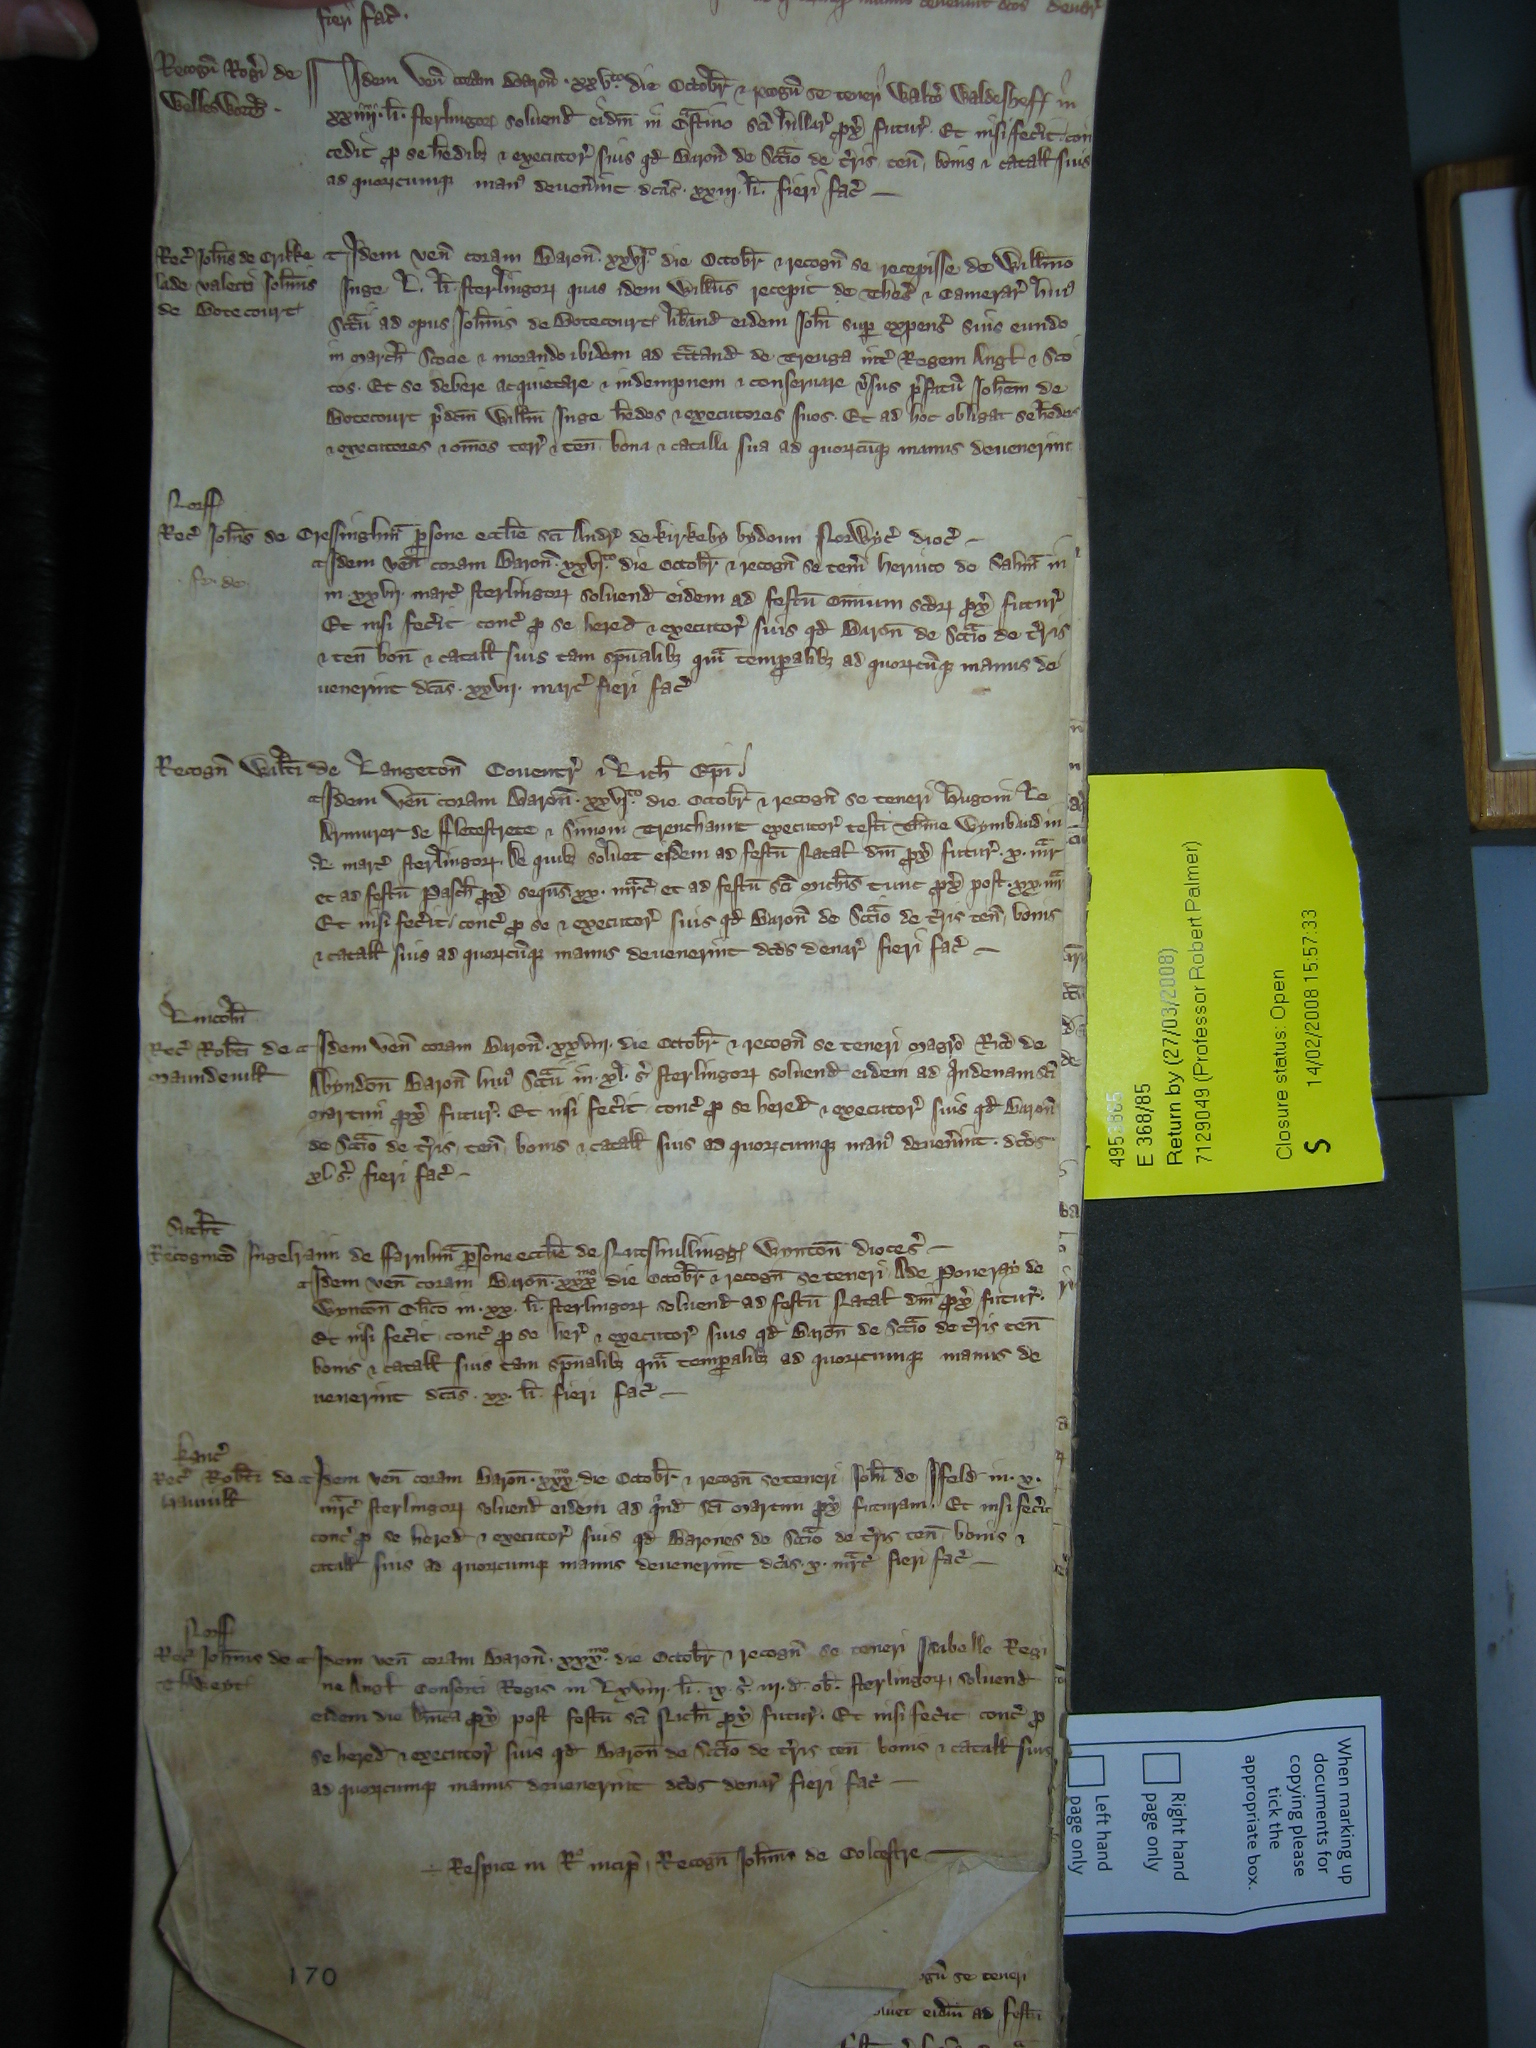 fieri fac̄.
Recogn̄ Rogi de
Wellesword.
Idem ven̄ coram Baron̄ . xxv.to die Octobr̄ & recogn̄ se teneri Walto Waldeshef in
xxiiii. li. sterlingoꝝ soluend eidm̄ in Crastino sci hillar̄ prox̄ futur̄. Et nisi fecit con
cedit ꝑ se hedibꝫ & executor̄ suis qd Baron̄ de Sctio de tris ten̄, bonis & catall suis
ad quoꝝcumqꝫ man deuenint dcas . xxiiii. li. fieri fac̄
Rec̄ Johis de Crikke
lade valecti Johnis
de Botecourt
Idem ven̄ coram Baron̄. xxvjto die Octobr̄ & recogn̄ se recepisse de Willmo
Inge L. li. sterlingoꝝ quas idem Willus recepit de Thes & Camerar̄ hui
Sccii ad opus Johnis de Botecourt liband eidem Johi sup expens suis eundo
in March Scocie & morando ibidem ad tctand de Treuga int Regem Angl & Sco
tos. Et se debere acquietare & indempnem & conseruare vsus pfatu Johem de
Botecourt pdcm Willm Inge hedes & executores suos. Et ad hoc obligat se hedes
& executores & omes terr & ten bona & catalla sua ad quoꝝcuqꝫ manus deuenerint
Norff
Rec̄ Johis de Cressinghm̄ psone ecclie sci Andr de kirkeby bydoun Norwyc dioc
Idem ven̄ coram Baron̄. xxvj.to die Octobr̄ & recogn̄ se teneri henrico de Sahm̄ in
in xxvij. marc̄ sterlingoꝝ soluend eidem ad festu Omnium scoꝝ prox̄ futur̄
Et nisi fecit conc̄ ꝑ se hered & executor̄ suis qd Baron̄ de Sctio de tris
& ten̄ bon̄ & catall suis tam spualibꝫ qm̄ temporalibꝫ ad quoꝝcuqꝫ manus de
uenerint dcas . xxvij. marc̄ fieri fac̄
Recogn̄ Walti de Langeton̄ Couentr̄ & Lich Epi
Idem ven̄ coram Baron̄. xxvj.to die Octobr̄ & recogn̄ se teneri Hugoni Le
Armurer de ffletestrete & Simoni Trenchaunt executor̄ testi Thme Wymbaud in
.L. marc̄ sterlingoꝝ. De quibꝫ soluet eisdem ad festu Natal dni prox̄ futur̄. x. mr̄
et ad festu Pasch prox̄ sequns. xx. mrc̄ et ad festu sci Michis tunc prox̄ post. xx. mr̄
Et nisi fecit, conc̄ ꝑ se & executor̄ suis qd Baron̄ de Sctio de tris ten̄, bonis
& catall suis ad quoꝝcuqꝫ manus deuenerint dcos denar̄ fieri fac̄
Lincoln̄
Rec̄ Robti de
Maundeuill
Idem ven̄ coram Baron̄. xxviii. die Octobr̄ & recogn̄ se teneri Magro Rico de
Abyndon̄ Baron̄ hui Sccii in . xl. s. sterlingoꝝ soluend eidem ad Qindenam sci
Martini prox̄ futur̄. Et nisi fecit conc̄ ꝑ se hered & executor̄ suis qd Baron̄
de Sctio de tris, ten̄, bonis & catall suis ad quoꝝcumqꝫ man deuenint. dcos
xl. s. fieri fac̄
Sutht
Recognico Ingelrami de ffarnhm̄ psone ecclie de Nutshullingg Wynton̄ dioces
Idem ven̄ coram Baron̄. xxx.mo die Octobr̄ & recogn̄ se teneri Ade Poueray de
Wynton̄ Clico in . xx. li. sterlingoꝝ soluend ad festu Natal dni prox̄ futur̄.
Et nisi fecit conc̄ ꝑ se her̄ & executor̄ suis qd Baron̄ de Sctio de tris ten̄
bonis & catall suis tam spualibꝫ qm̄ temporalibꝫ ad quoꝝcumqꝫ manus de
uenerint dcas . xx. li. fieri fac̄
Kanc̄
Rec̄ Robti de
hauuill
Idem ven̄ coram Baron̄. xxx.mo die Octobr̄ & recogn̄ se teneri Johi de Ifeld in. x.
mrc̄ sterlingoꝝ soluend eidem ad qind sci Martini prox̄ futuram. Et nisi fecit
conc̄ ꝑ se hered & executor̄ suis qd Barones de Sctio de tris ten̄ bonis &
catall suis ad quoꝝcumqꝫ manus deuenerint dcas. x. mrc̄ fieri fac̄
Norff
Rec̄ Johnis de
Thweyt
Idem ven̄ coram Baron̄. xxx.mo die Octobr̄ & recogn̄ se teneri Isabelle Regi
ne Angl Consorti Regis in Lxviii. li. ix. s. iii. d. ob. sterlingoꝝ, soluend
eidem die dnica prox̄ post festu sci Michis prox̄ futur̄. Et nisi fecit conc̄ ꝑ
se hered & executor̄ suis qd Baron̄ de Sctio de tris ten̄ bonis & catall suis
ad quoꝝcumqꝫ manus deuenerint dcos denar̄ fieri fac̄
Respice in Ro incip, Recogn̄ Johnis de Colcestre
170
se teneri
eidm̄ ad festu
E 368/85
Return by (27/03/2008)
7129049 (Professor Robert Palmer)
Closure status: Open
S 14/02/2008 15:57:33
When marking up
documents for
copying please
tick the
appropriate box.
Right hand
page only
Left hand
page only